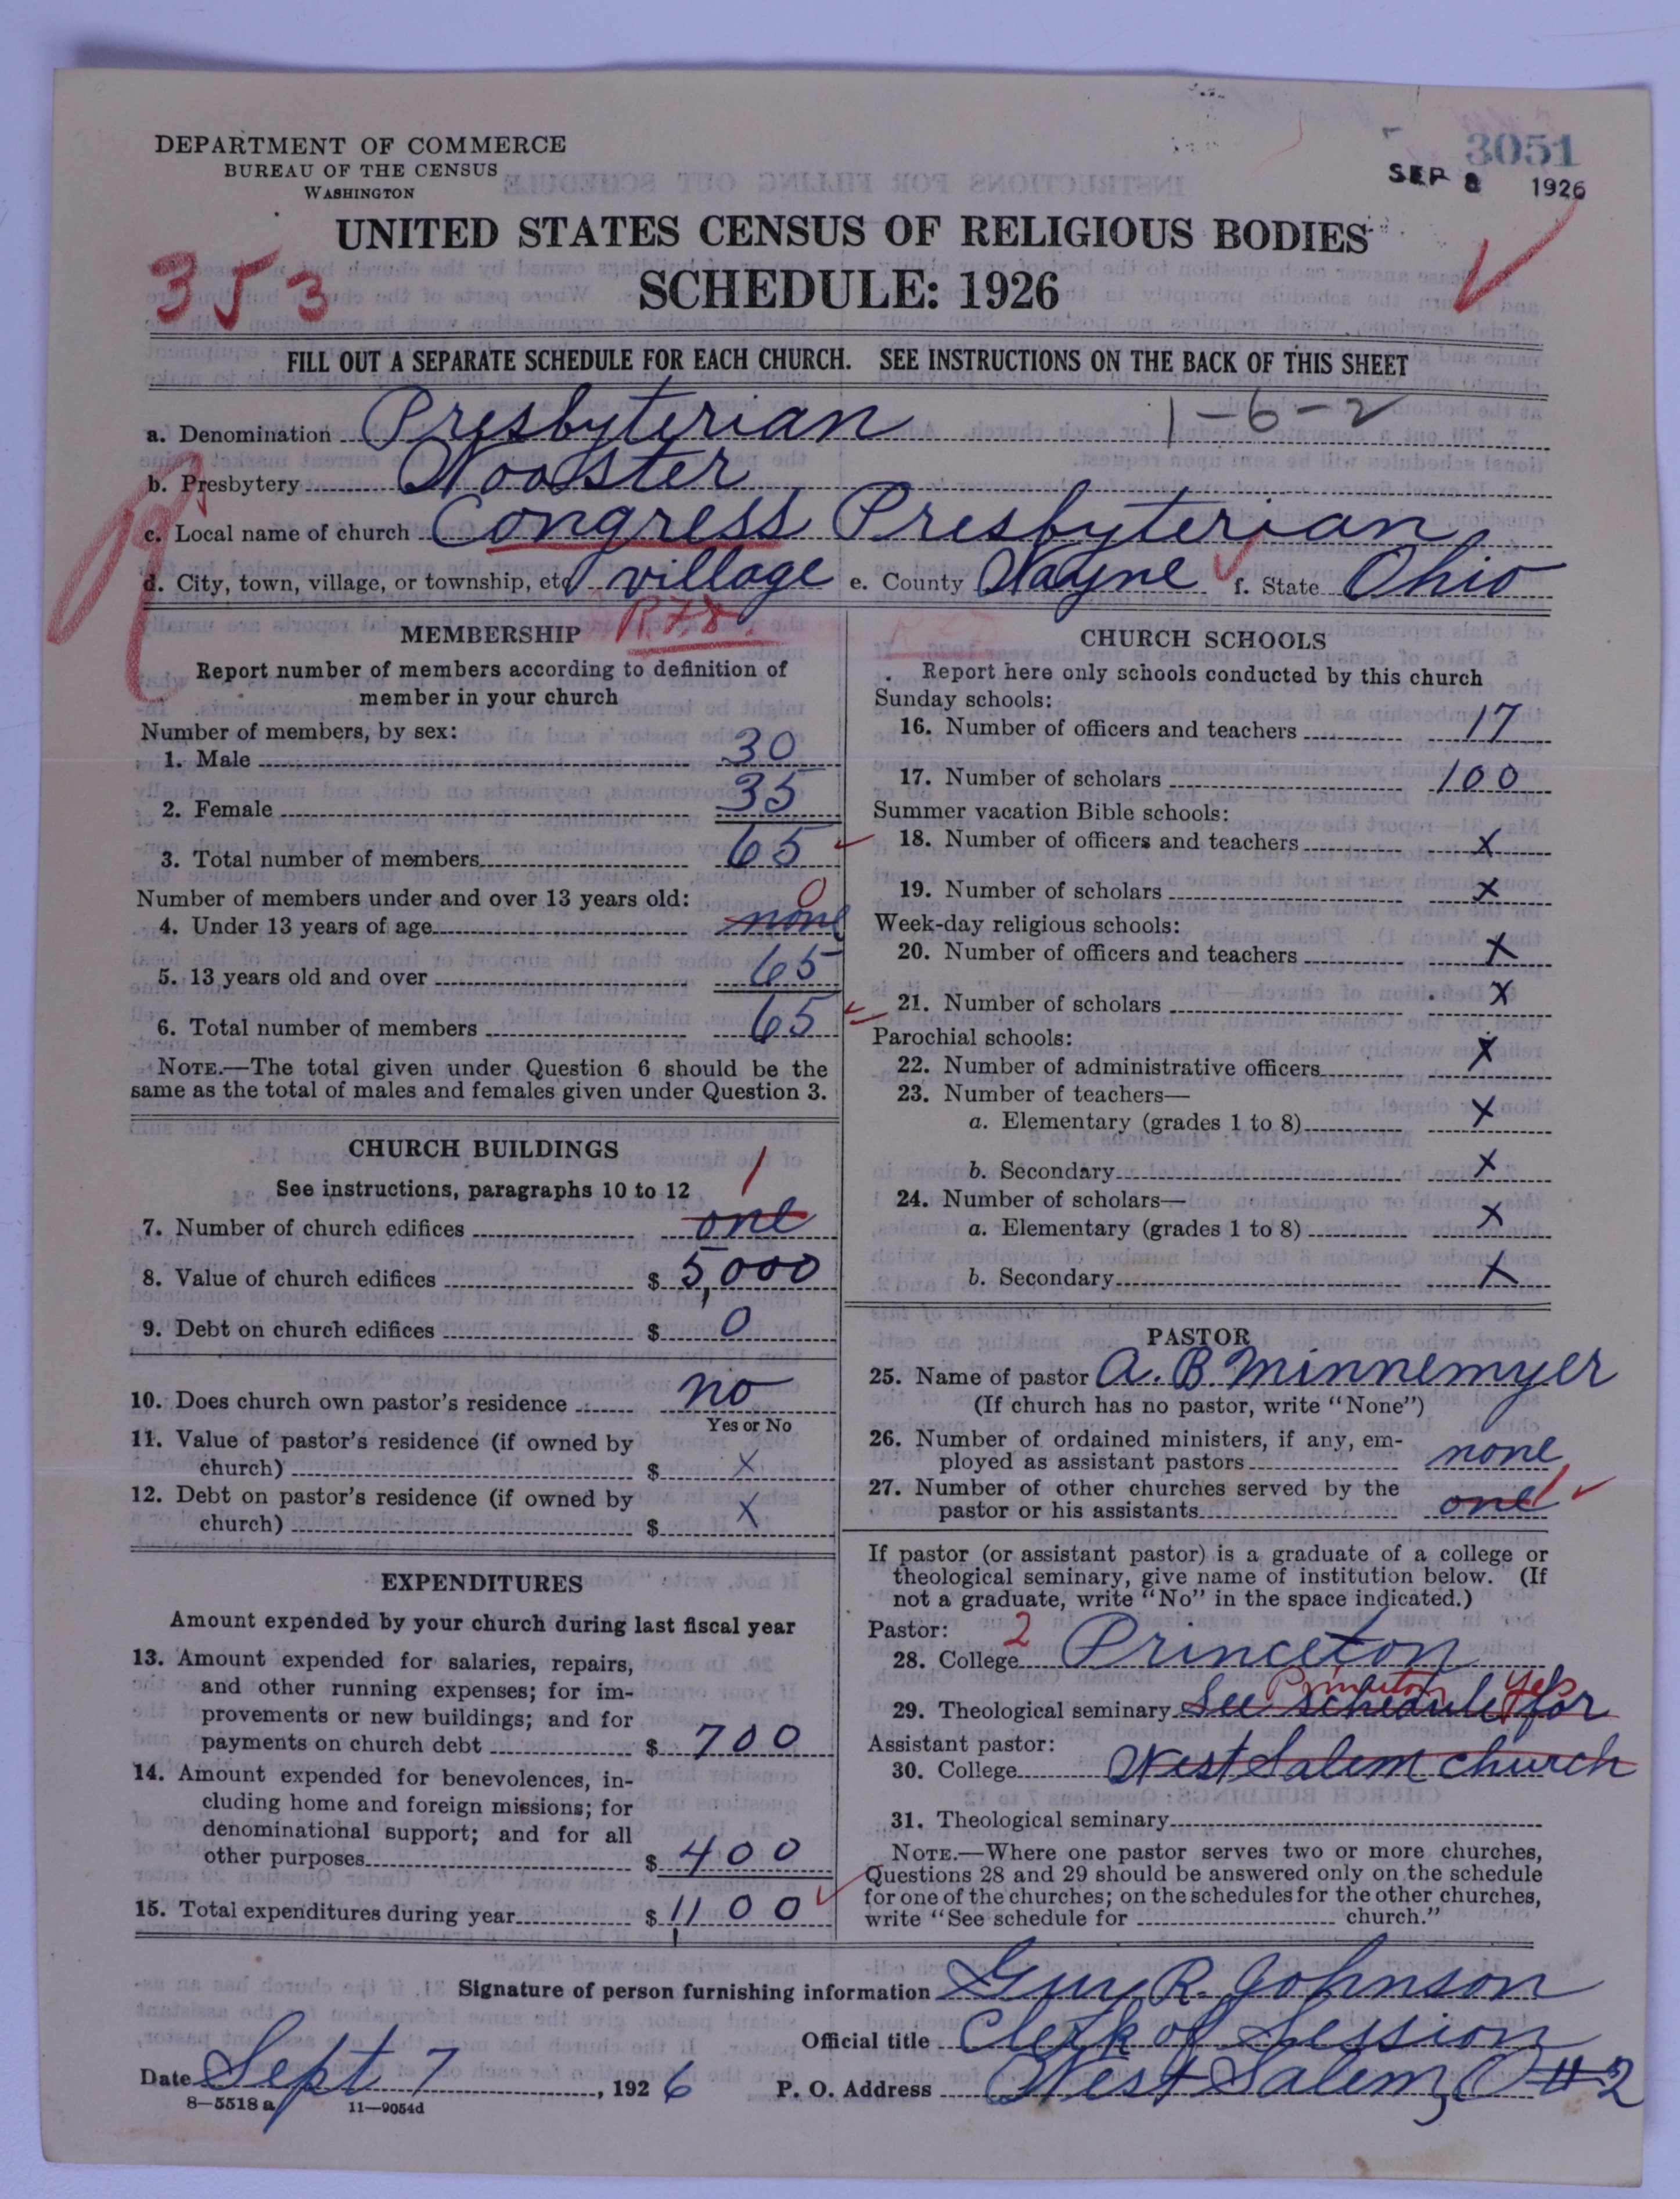 DEPARTMENT OF COMMERCE
BUREAU OF THE CENSUS
WASHINGTON
3051
SEP 8 1926
UNITED STATES CENSUS OF RELIGIOUS BODIES
353
SCHEDULE: 1926
FILL OUT A SEPARATE SCHEDULE FOR EACH CHURCH. SEE INSTRUCTIONS ON THE BACK OF THIS SHEET
a. Denomination Presbyterian 1-6-2
b. Presbytery Wooster
c. Local name of church Congress Presbyterian
d. City, town, village, or township, etc. village e. County Wayne f. State Ohio
R.F.D.
MEMBERSHIP
Report number of members according to definition of
member in your church
Number of members, by sex:
1. Male 30
2. Female 35
3. Total number of members 65
Number of members under and over 13 years old:
0
4. Under 13 years of age none
5. 13 years old and over 65
6. Total number of members 65
NOTE.—The total given under Question 6 should be the
same as the total of males and females given under Question 3.
CHURCH BUILDINGS
See instructions, paragraphs 10 to 12
1
7. Number of church edifices one
8. Value of church edifices $ 5,000
9. Debt on church edifices $ 0
10. Does church own pastor's residence no
Yes or No
11. Value of pastor's residence (if owned by
church) $ x
12. Debt on pastor's residence (if owned by
church) $ x
EXPENDITURES
Amount expended by your church during last fiscal year
13. Amount expended for salaries, repairs,
and other running expenses; for im-
provements or new buildings; and for
payments on church debt $ 700
14. Amount expended for benevolences, in-
cluding home and foreign missions; for
denominational support; and for all
other purposes $ 400
15. Total expenditures during year $ 1,100
CHURCH SCHOOLS
Report here only schools conducted by this church
Sunday schools:
16. Number of officers and teachers 17
17. Number of scholars 100
Summer vacation Bible schools:
18. Number of officers and teachers x
19. Number of scholars x
Week-day religious schools:
20. Number of officers and teachers x
21. Number of scholars x
Parochial schools:
22. Number of administrative officers x
23. Number of teachers—
a. Elementary (grades 1 to 8) x
b. Secondary x
24. Number of scholars—
a. Elementary (grades 1 to 8) x
b. Secondary x
PASTOR
25. Name of pastor A. B. Minnemyer
(If church has no pastor, write "None")
26. Number of ordained ministers, if any, em-
ployed as assistant pastors none
27. Number of other churches served by the
pastor or his assistants one 1
If pastor (or assistant pastor) is a graduate of a college or
theological seminary, give name of institution below. (If
not a graduate, write "No" in the space indicated.)
Pastor: 2
28. College Princeton
Princeton yes
29. Theological seminary See schedule for
Assistant pastor:
30. College West Salem church
31. Theological seminary
NOTE.—Where one pastor serves two or more churches,
Questions 28 and 29 should be answered only on the schedule
for one of the churches; on the schedules for the other churches,
write "See schedule for church."
Signature of person furnishing information Guy R. Johnson
Official title Clerk of Session
Date Sept 7, 1926 P. O. Address West Salem, O #2
8—5518 a 11—9054d